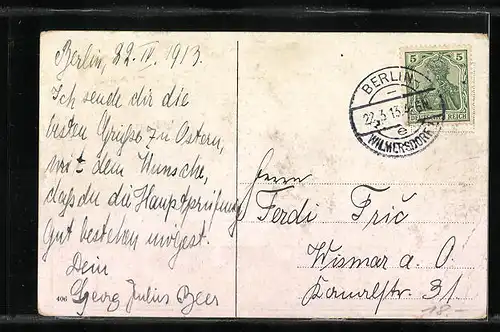 Berlin, 22. IV. 1913.
Ich sende dir die
besten Grüße zu Ostern,
mit dem Wunsche,
daß du die Hauptprüfung
gut bestehen mögest.
Dein
Georg Julius Beer
406
5 5
REICH
BERLIN
22.3.13.
e
WILMERSDORF
Herrn
Ferdi Fric
Wismar a. O.
Kanalstr. 31
18.-